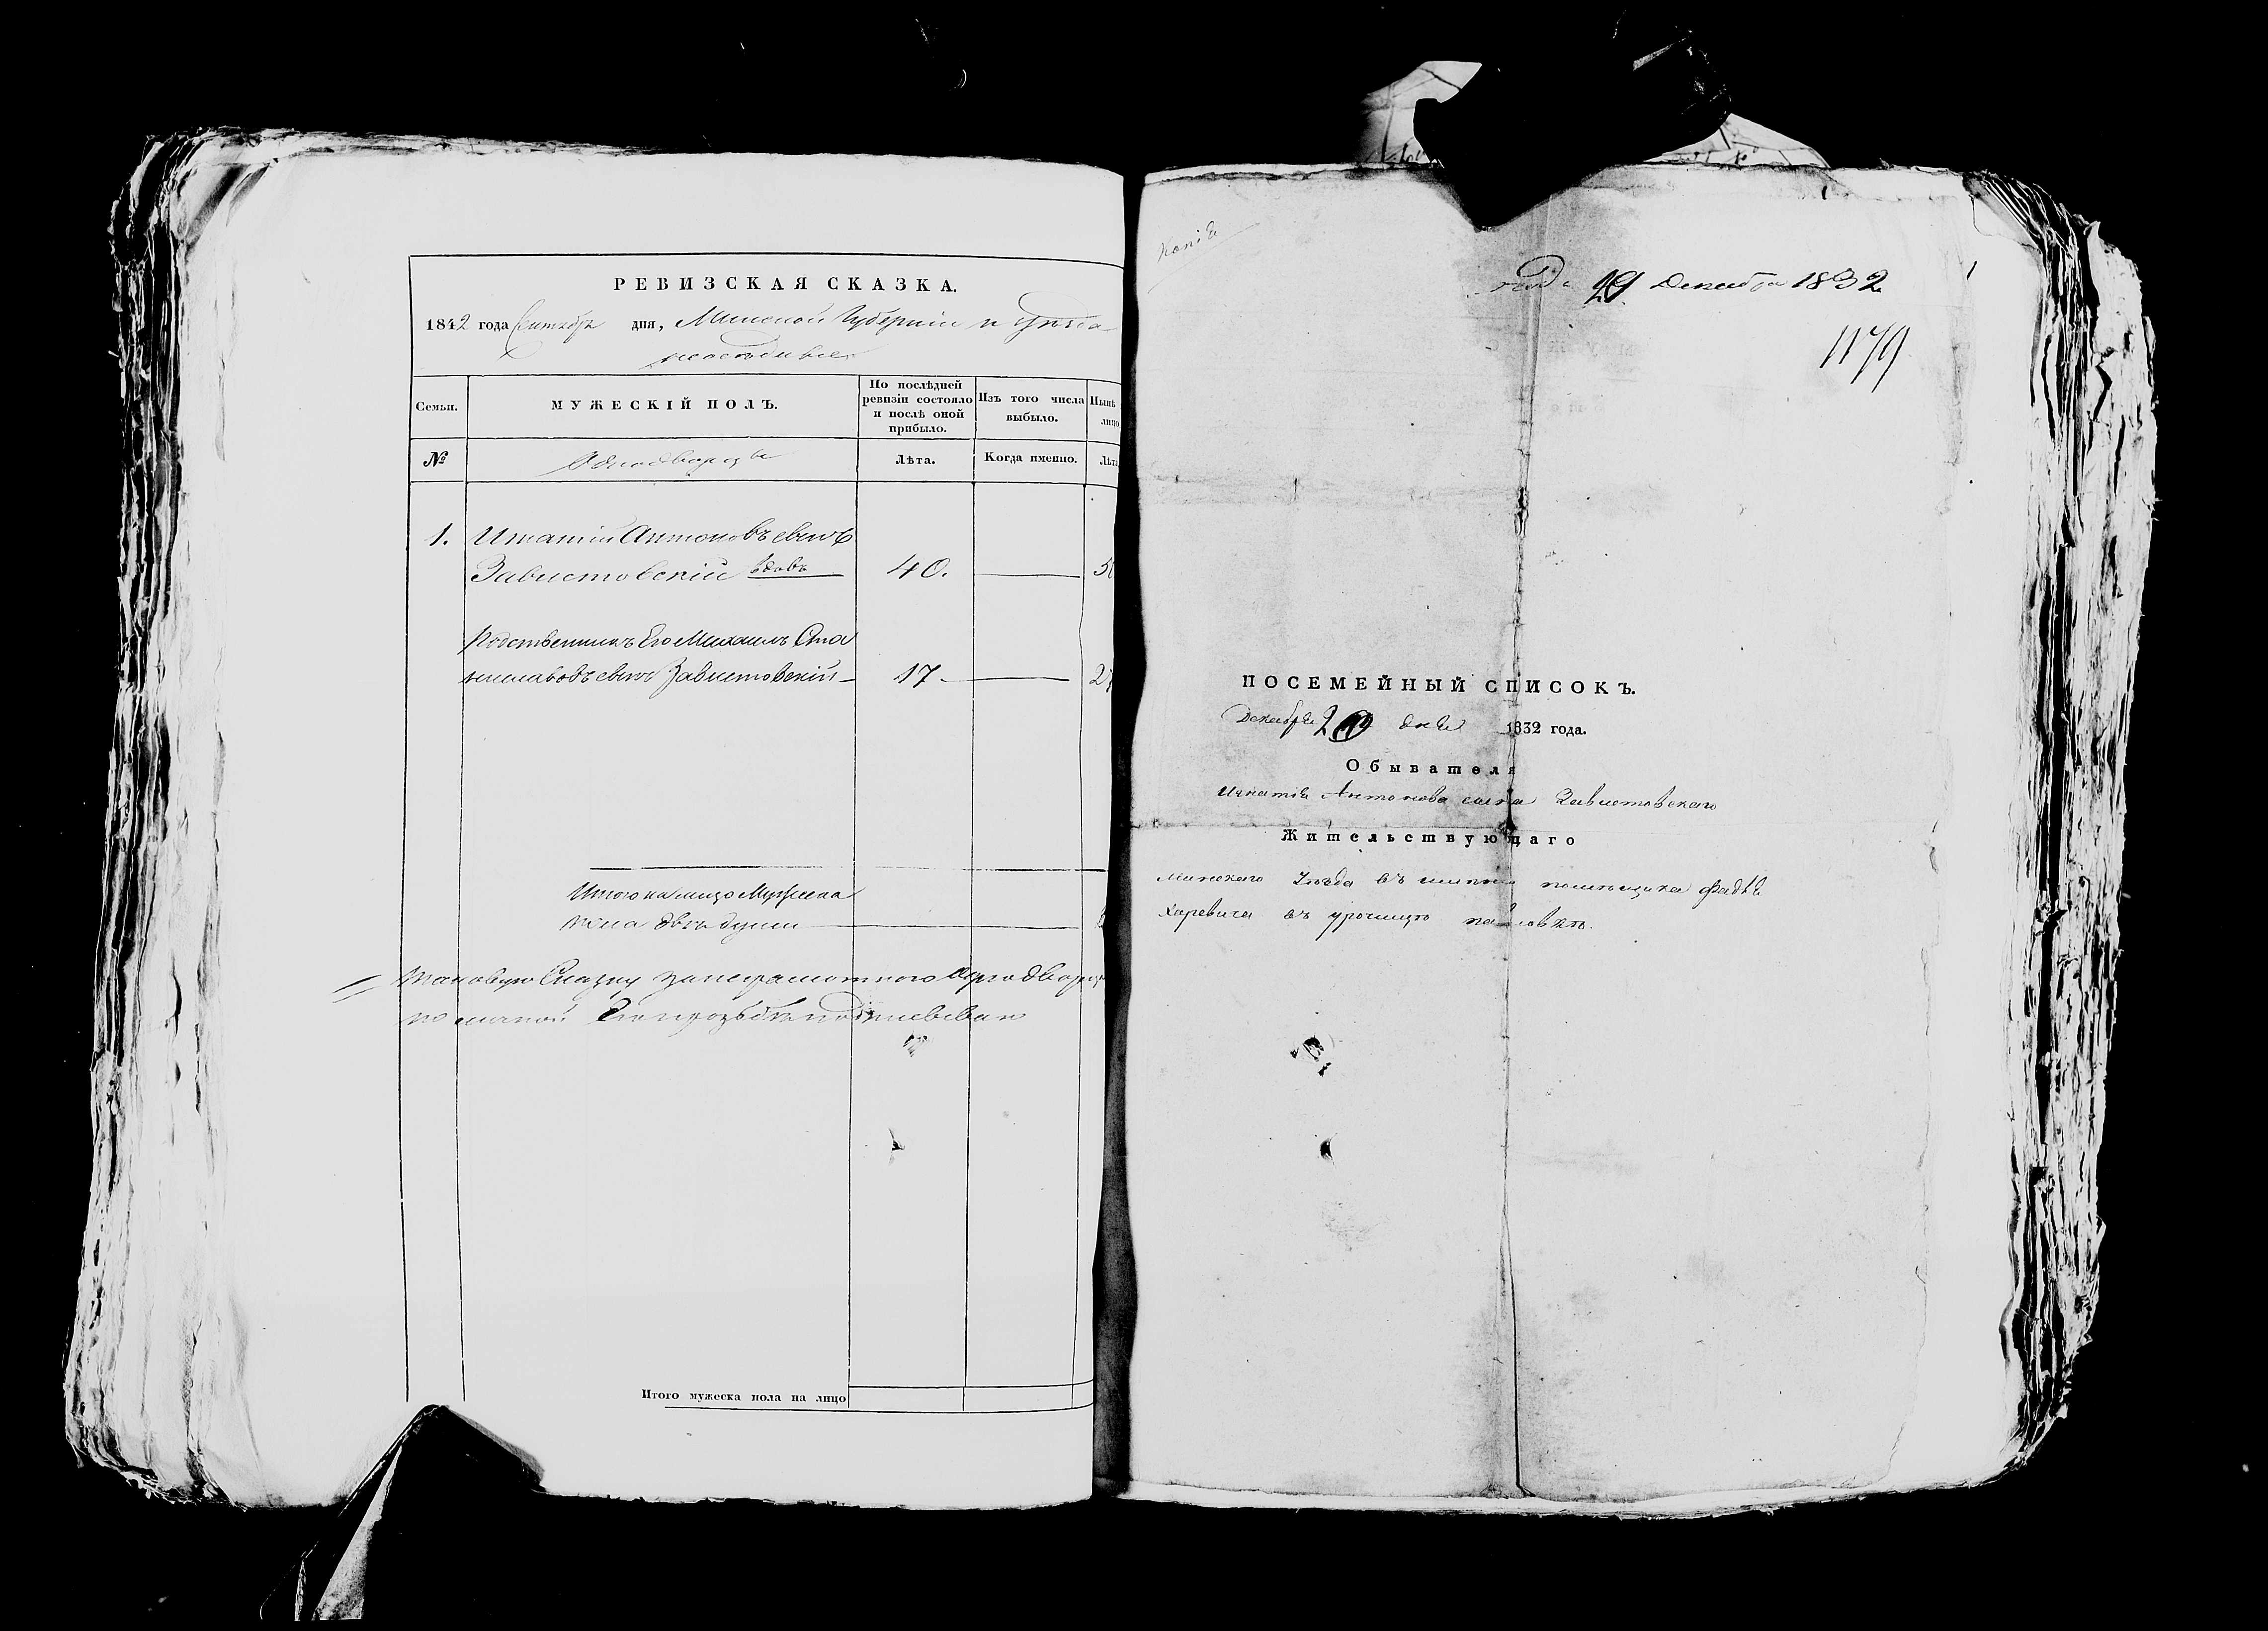 РЕВИЗСКАЯ СКАЗКА.
1842 года Сентября дня, Минской Губерніи и уѣзда
Семьи.
МУЖЕСКІЙ ПОЛЪ.
По послѣдней
ревизіи состояло
и послѣ оной
прибыло.
Изъ того числа
выбыло.
Нынѣ
лицо
№
Однодворцы
Лѣта.
Когда именно.
Лѣта
1. Игнатій Антоновъ сынъ
Завистовскій вдовъ 40.
Родственникъ Его Михаилъ Ста
ниславовъ сынъ Завистовскій 17
Итого на лицо Мужеска
пола двѣ души
Таковую Сказку за неграмотного однодворца
по личной Его прозьбѣ
Итого мужеска пола на лицо
Копія
29 Декабря 1832
1179
ПОСЕМЕЙНЫЙ СПИСОКЪ.
Декабря дня 1832 года.
Обывателя
Игнатія Антонова сына Завистовскаго
Жительствующаго
Минскаго Уѣзда въ имѣніи помѣщика Фадѣя
Харевича въ урочищѣ